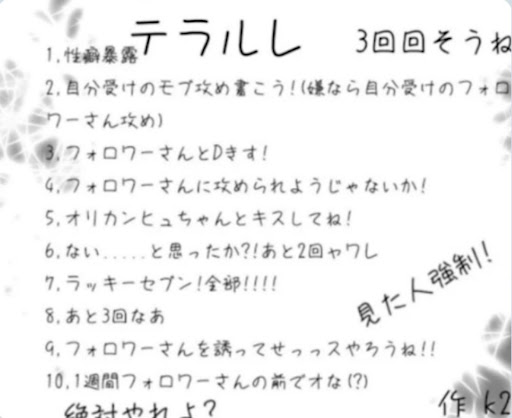 テラルレ 3回回そうね
1.性癖暴露
2.自分受けのモブ攻め書こう!(嫌なら自分受けのフォロ
ワーさん攻め)
3.フォロワーさんとDきす!
4.フォロワーさんに攻められようじゃないか!
5.オリカンヒュちゃんとキスしてね!
6.ない.....と思ったか?!あと2回ャワレ
7.ラッキーセブン!全部!!!!
8.あと3回なあ
9.フォロワーさんを誘ってせっっスやろうね!!
10.1週間フォロワーさんの前でオな(?)
見た人強制!
絶対やれよ?
作 k2